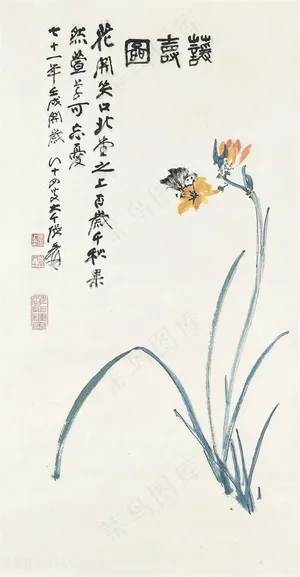 蘐壽圖
花開笑口北堂之上百歲千秋果
然萱草可忘憂
七十一年壬戌開歲八十四叟大千張爰
菜鸟图库